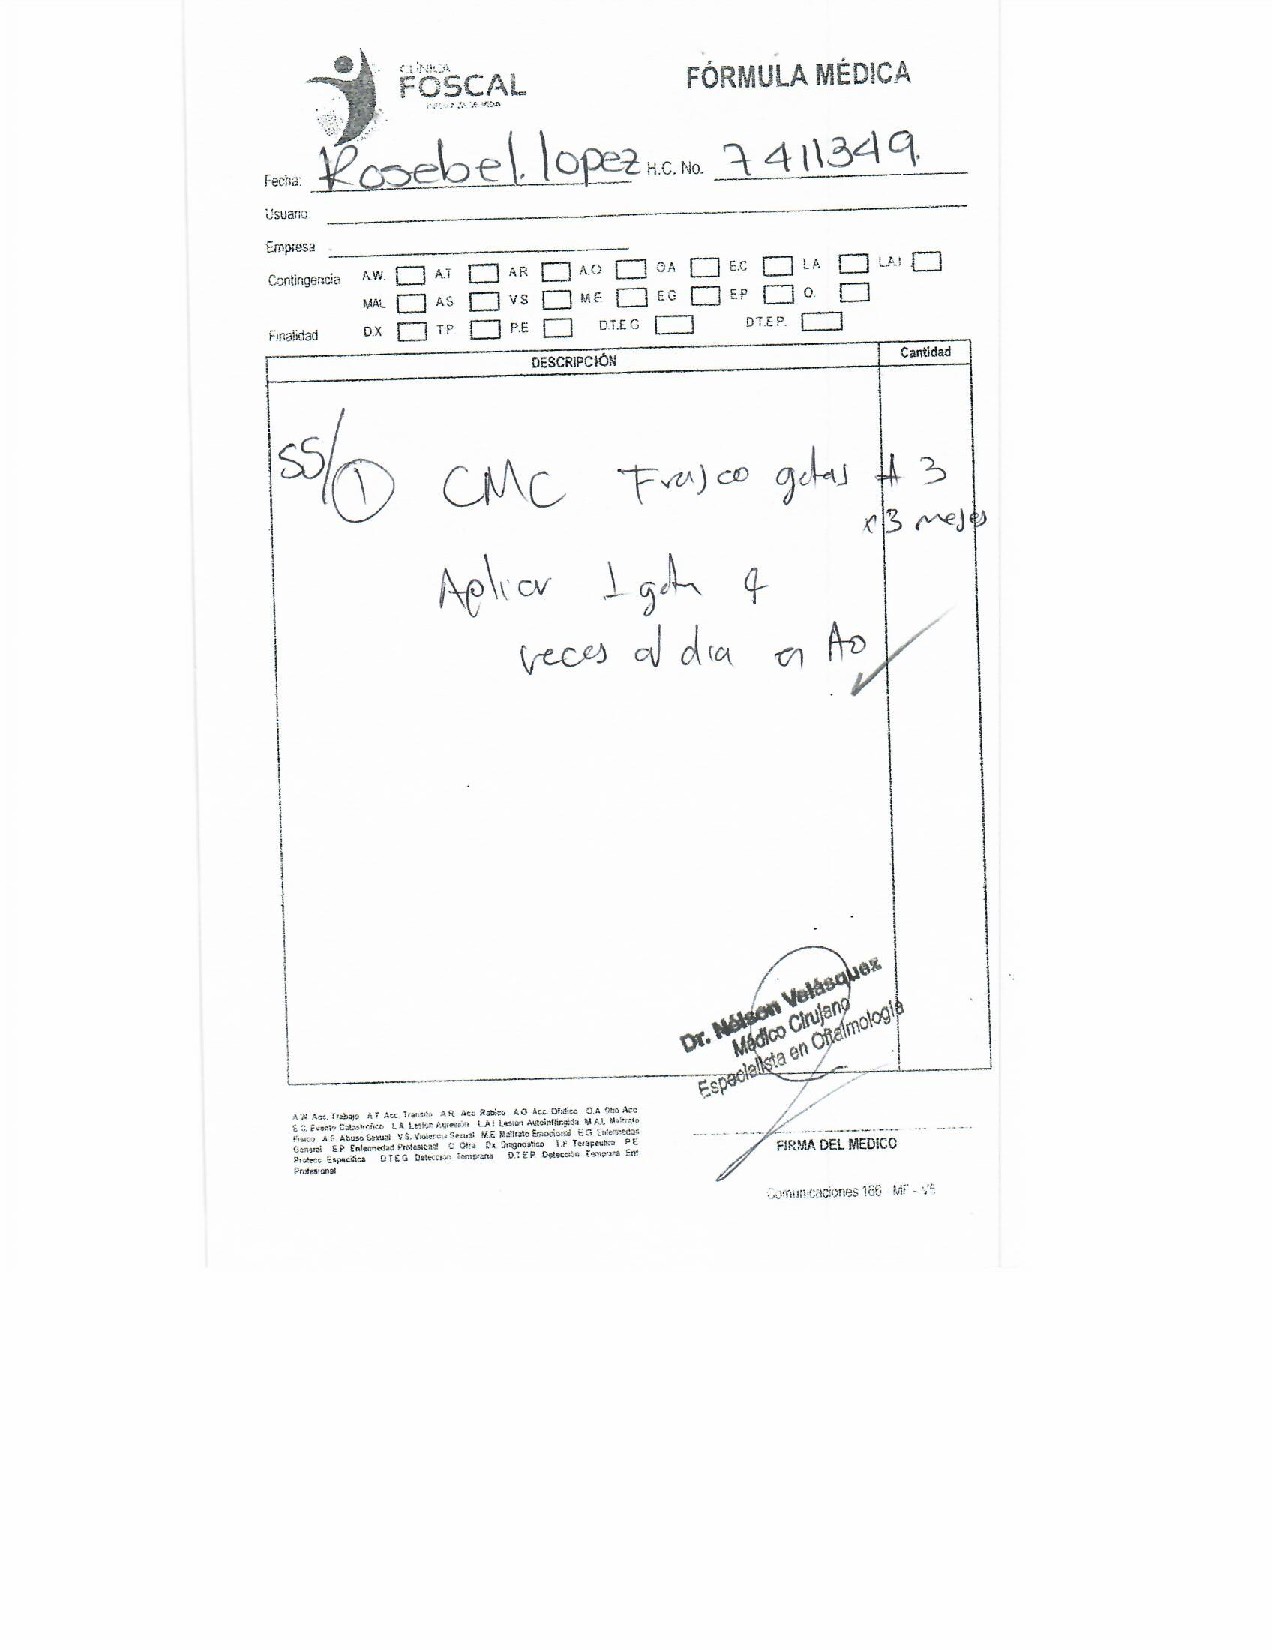 CLÍNICA
FOSCAL
FÓRMULA MÉDICA
Fecha: Rosebel. lopez H.C. No. 7411349.
Usuario
Empresa
Contingencia A.W. A.T AR A.O OA E.C LA L.A.I
MAL AS VS M.E EG E.P O.
Finalidad D.X T.P P.E D.T.E G D.T.E.P.
DESCRIPCIÓN Cantidad
SS/ 1 CMC Frasco gotas # 3
x 3 meses
Aplicar 1 gota 4
veces al dia en AO
Dr. Nelson Velásquez
Médico Cirujano
Especialista en Oftalmología
A.W Acc. Trabajo A.T Acc. Transito A.R. Acc Rabico A.O Acc. Ofidico O.A Otro Acc
E.C. Evento Catastrofico L.A Lesion Agresión L.A.I Lesion Autoinflingida M.A.L Maltrato
Fisico A.S Abuso Sexual V.S. Violencia Sexual M.E Maltrato Emocional E.G Enfermedad
General E.P Enfermedad Profesional O Otra Dx Diagnostico T.P Terapeutico P.E
Protecc Especifica D.T.E.G Deteccion Temprana D.T.E.P Detección Temprana Enf
Profesional
FIRMA DEL MEDICO
Comunicaciones 166 MF -